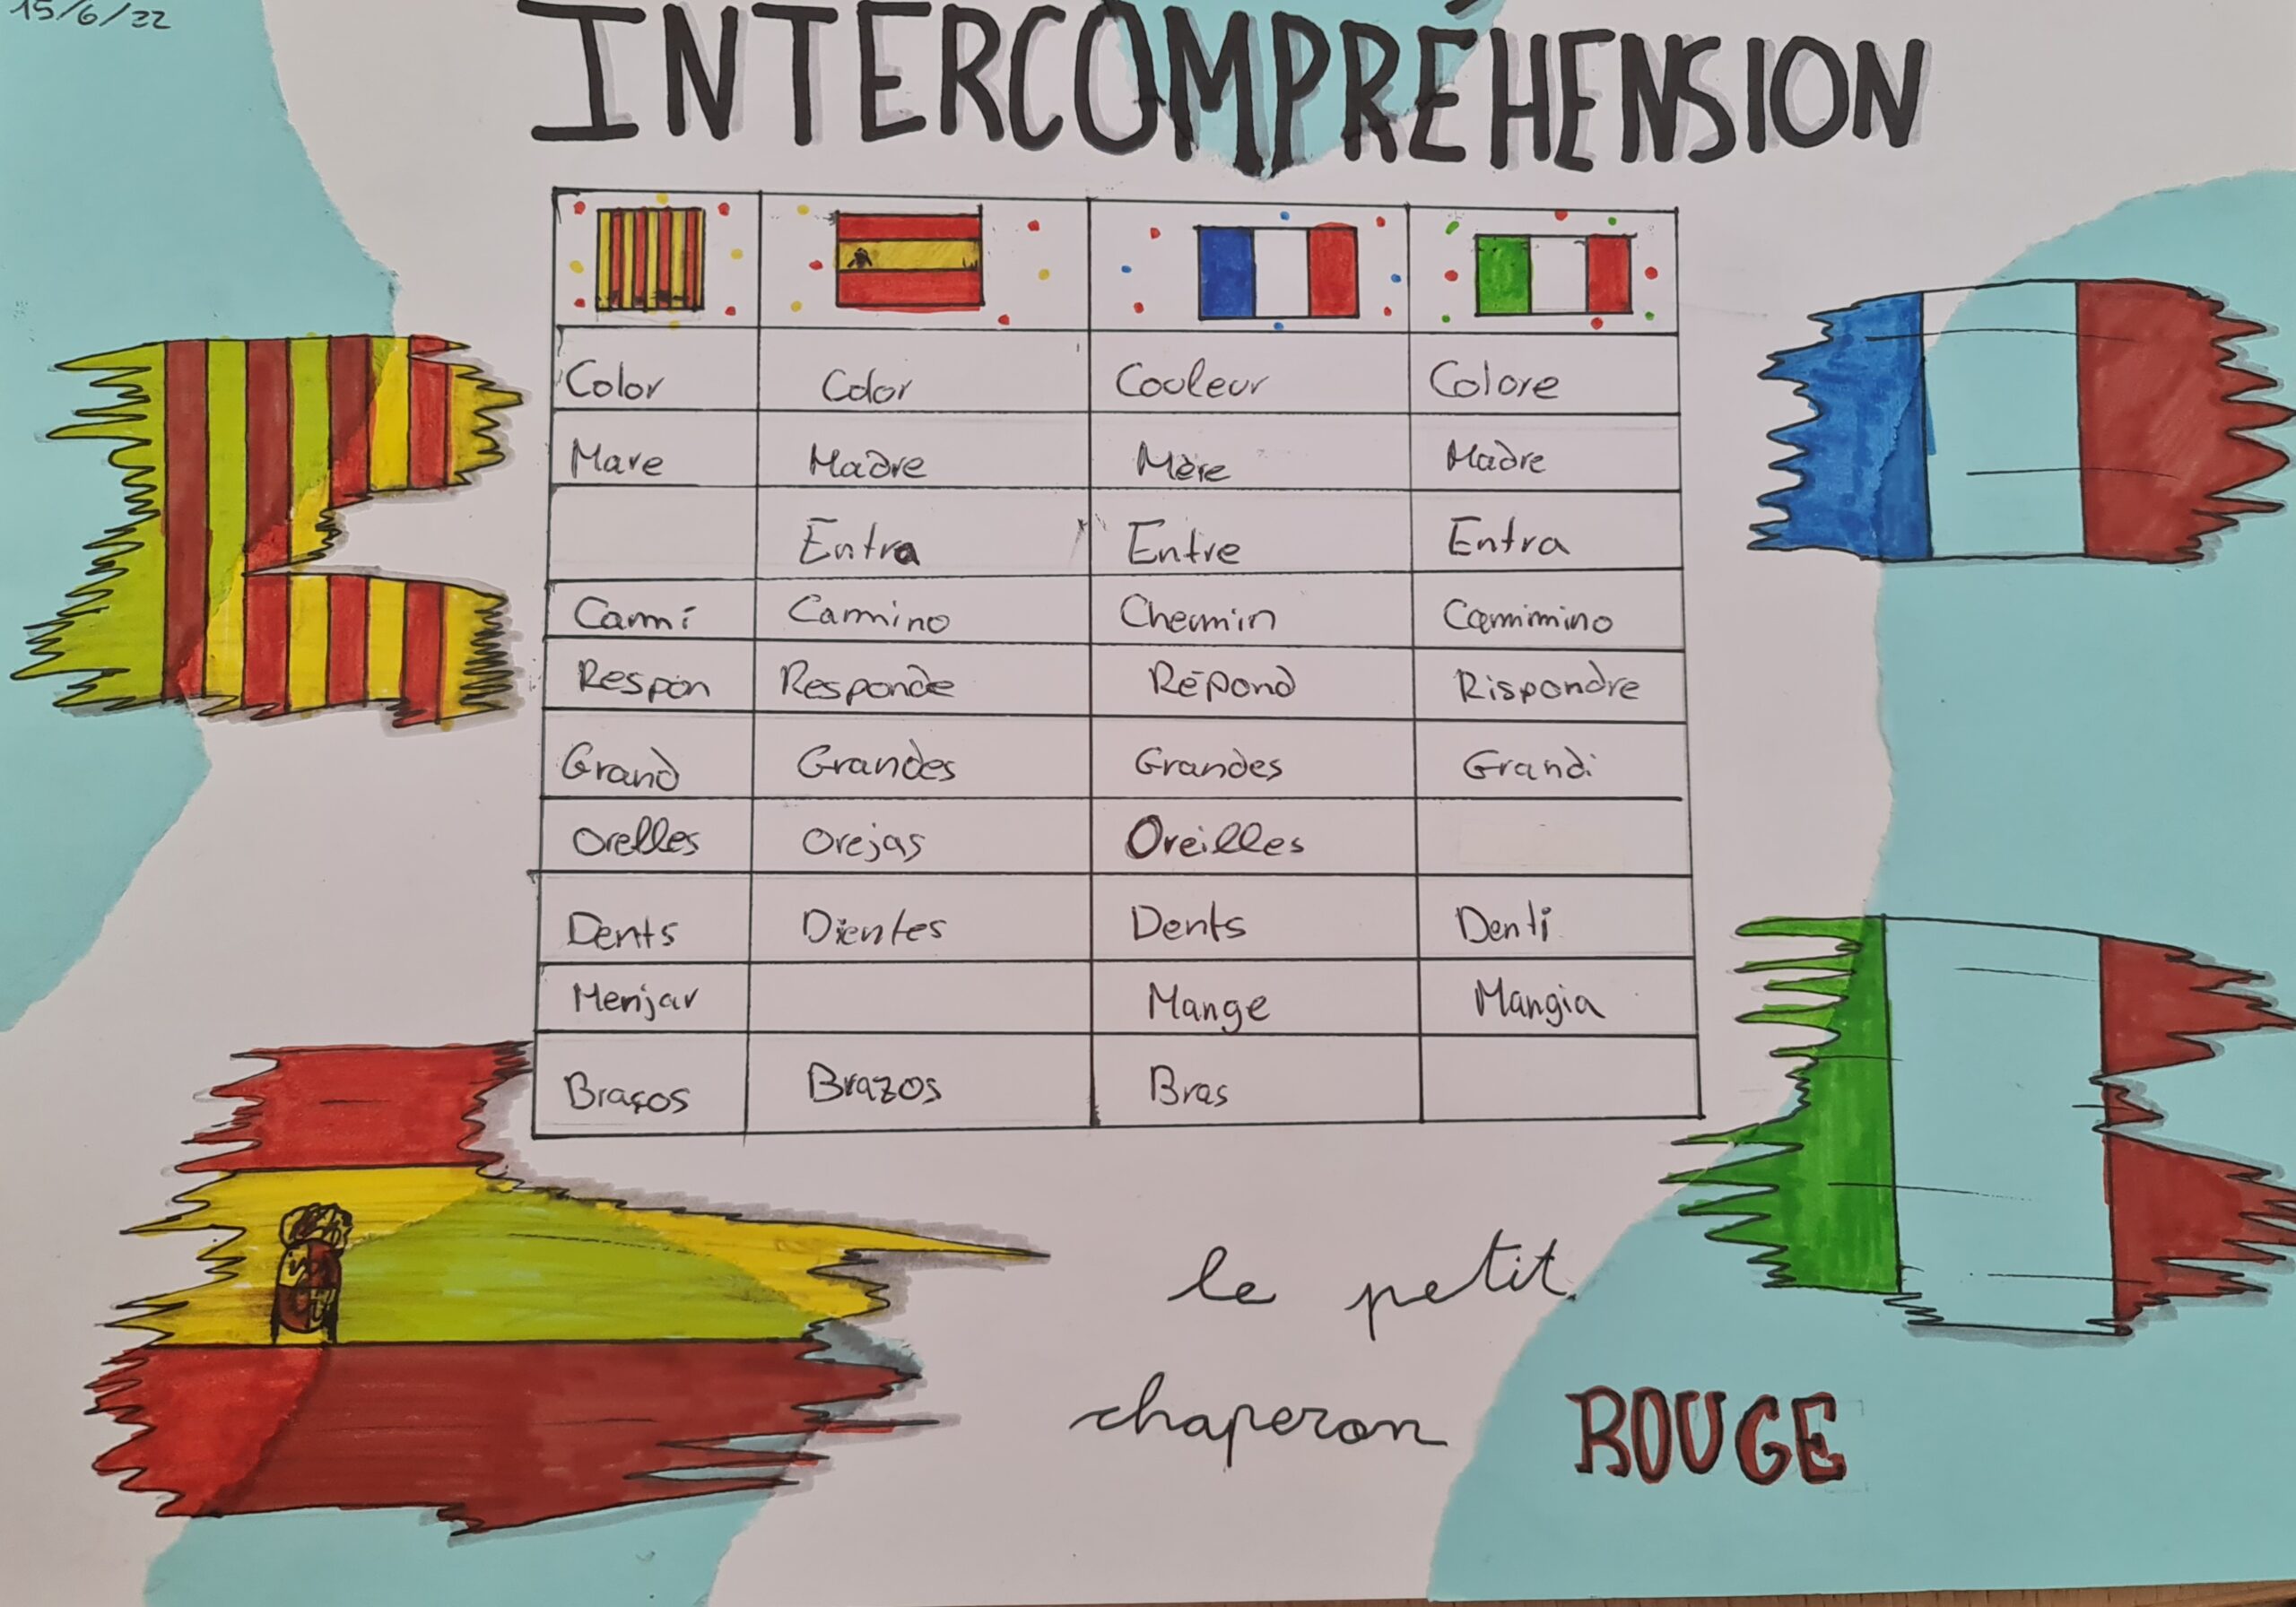 15/6/22
INTERCOMPRÉHENSION
Color Color Couleur Colore
Mare Madre Mère Madre
Entra Entre Entra
Camí Camino Chemin Cammino
Respon Responde Répond Rispondre
Grand Grandes Grandes Grandi
Orelles Orejas Oreilles
Dents Dientes Dents Denti
Menjar Mange Mangia
Braços Brazos Bras
le petit
chaperon ROUGE